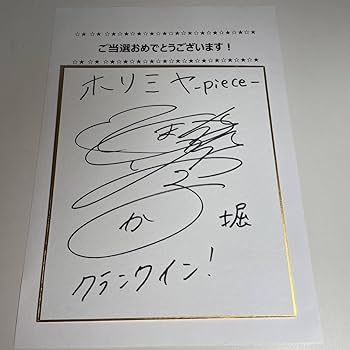 ☆★ ☆★ ☆★☆★☆★☆★☆★☆★☆★☆★☆★☆★
ご当選おめでとうございます！
☆★ ☆★ ☆★☆★☆★☆★☆★☆★☆★☆★☆★☆★
ホリミヤ-piece-
か
堀
クランクイン！